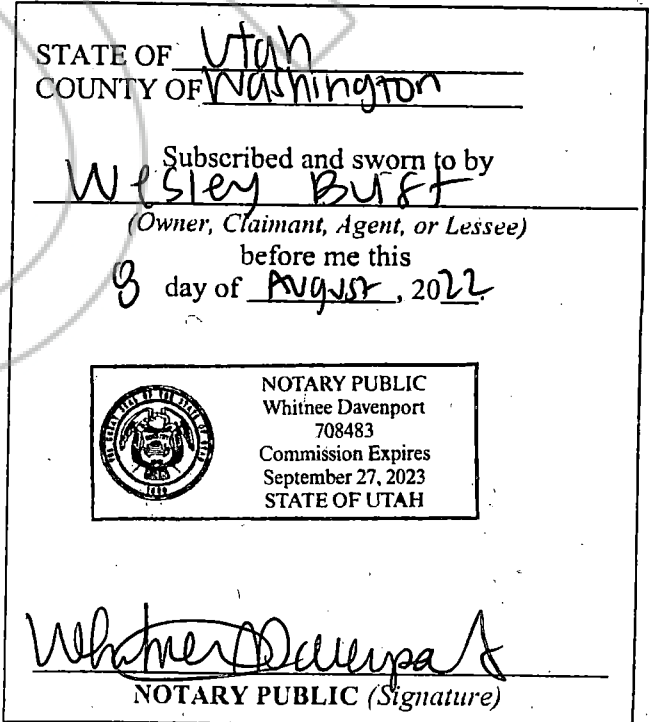 STATE OF Utah
COUNTY OF Washington
Subscribed and sworn to by
Wesley Burt
(Owner, Claimant, Agent, or Lessee)
before me this
8 day of August, 2022
NOTARY PUBLIC
Whitnee Davenport
708483
Commission Expires
September 27, 2023
STATE OF UTAH
THE GREAT SEAL OF THE STATE OF UTAH
1896
Whitnee Davenport
NOTARY PUBLIC (Signature)